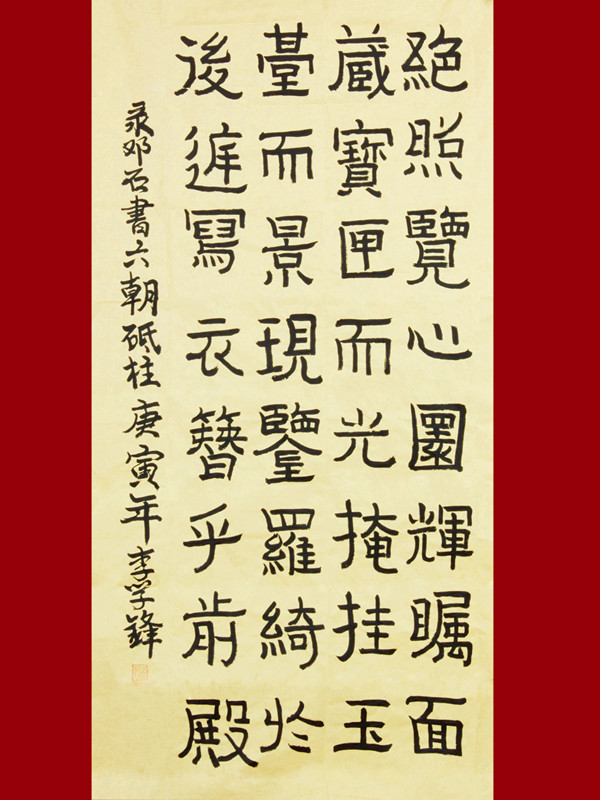 絕照覽心圜輝矚面
蔵寶匣而光掩挂玉
臺而景現鑒羅綺於
後庭寫衣簪乎前殿
录邓石書六朝砥柱庚寅年李学鋒